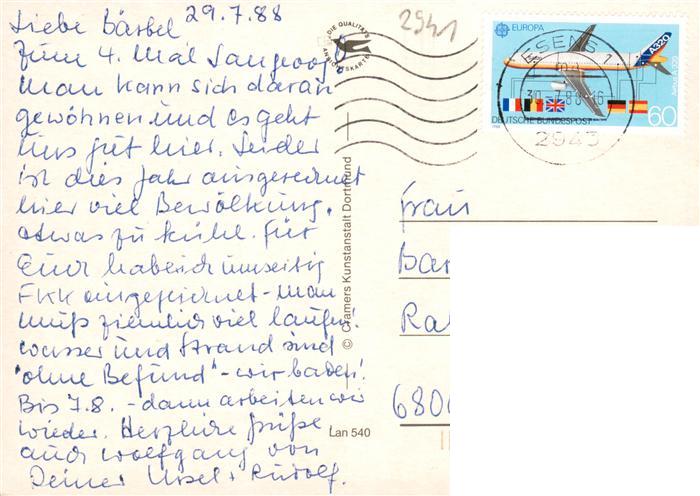 29.7.88
Liebe Bärbel
zum 4. Mal Langeoog
man kann sich daran
gewöhnen und es geht
uns gut hier. Leider
ist dies Jahr ausgerechnet
hier viel Bewölkung,
etwas zu kühl. Für
Euch habe ich umseitig
FKK eingezeichnet - man
muß ziemlich viel laufen!
Wasser und Strand sind
"ohne Befund" - wir baden!
Bis 7.8. - dann arbeiten wir
wieder. Herzliche Grüße
auch Wolfgang von
Deiner Ursel + Rudolf.
2941
DIE QUALITÄTS
ANSICHTSKARTE
© Cramers Kunstanstalt Dortmund
Lan 540
EUROPA
A320
Airbus A320
DEUTSCHE BUNDESPOST
60
1988
ESENS 1
30.-7.88-16
2943
Frau
Bär
Ra
680